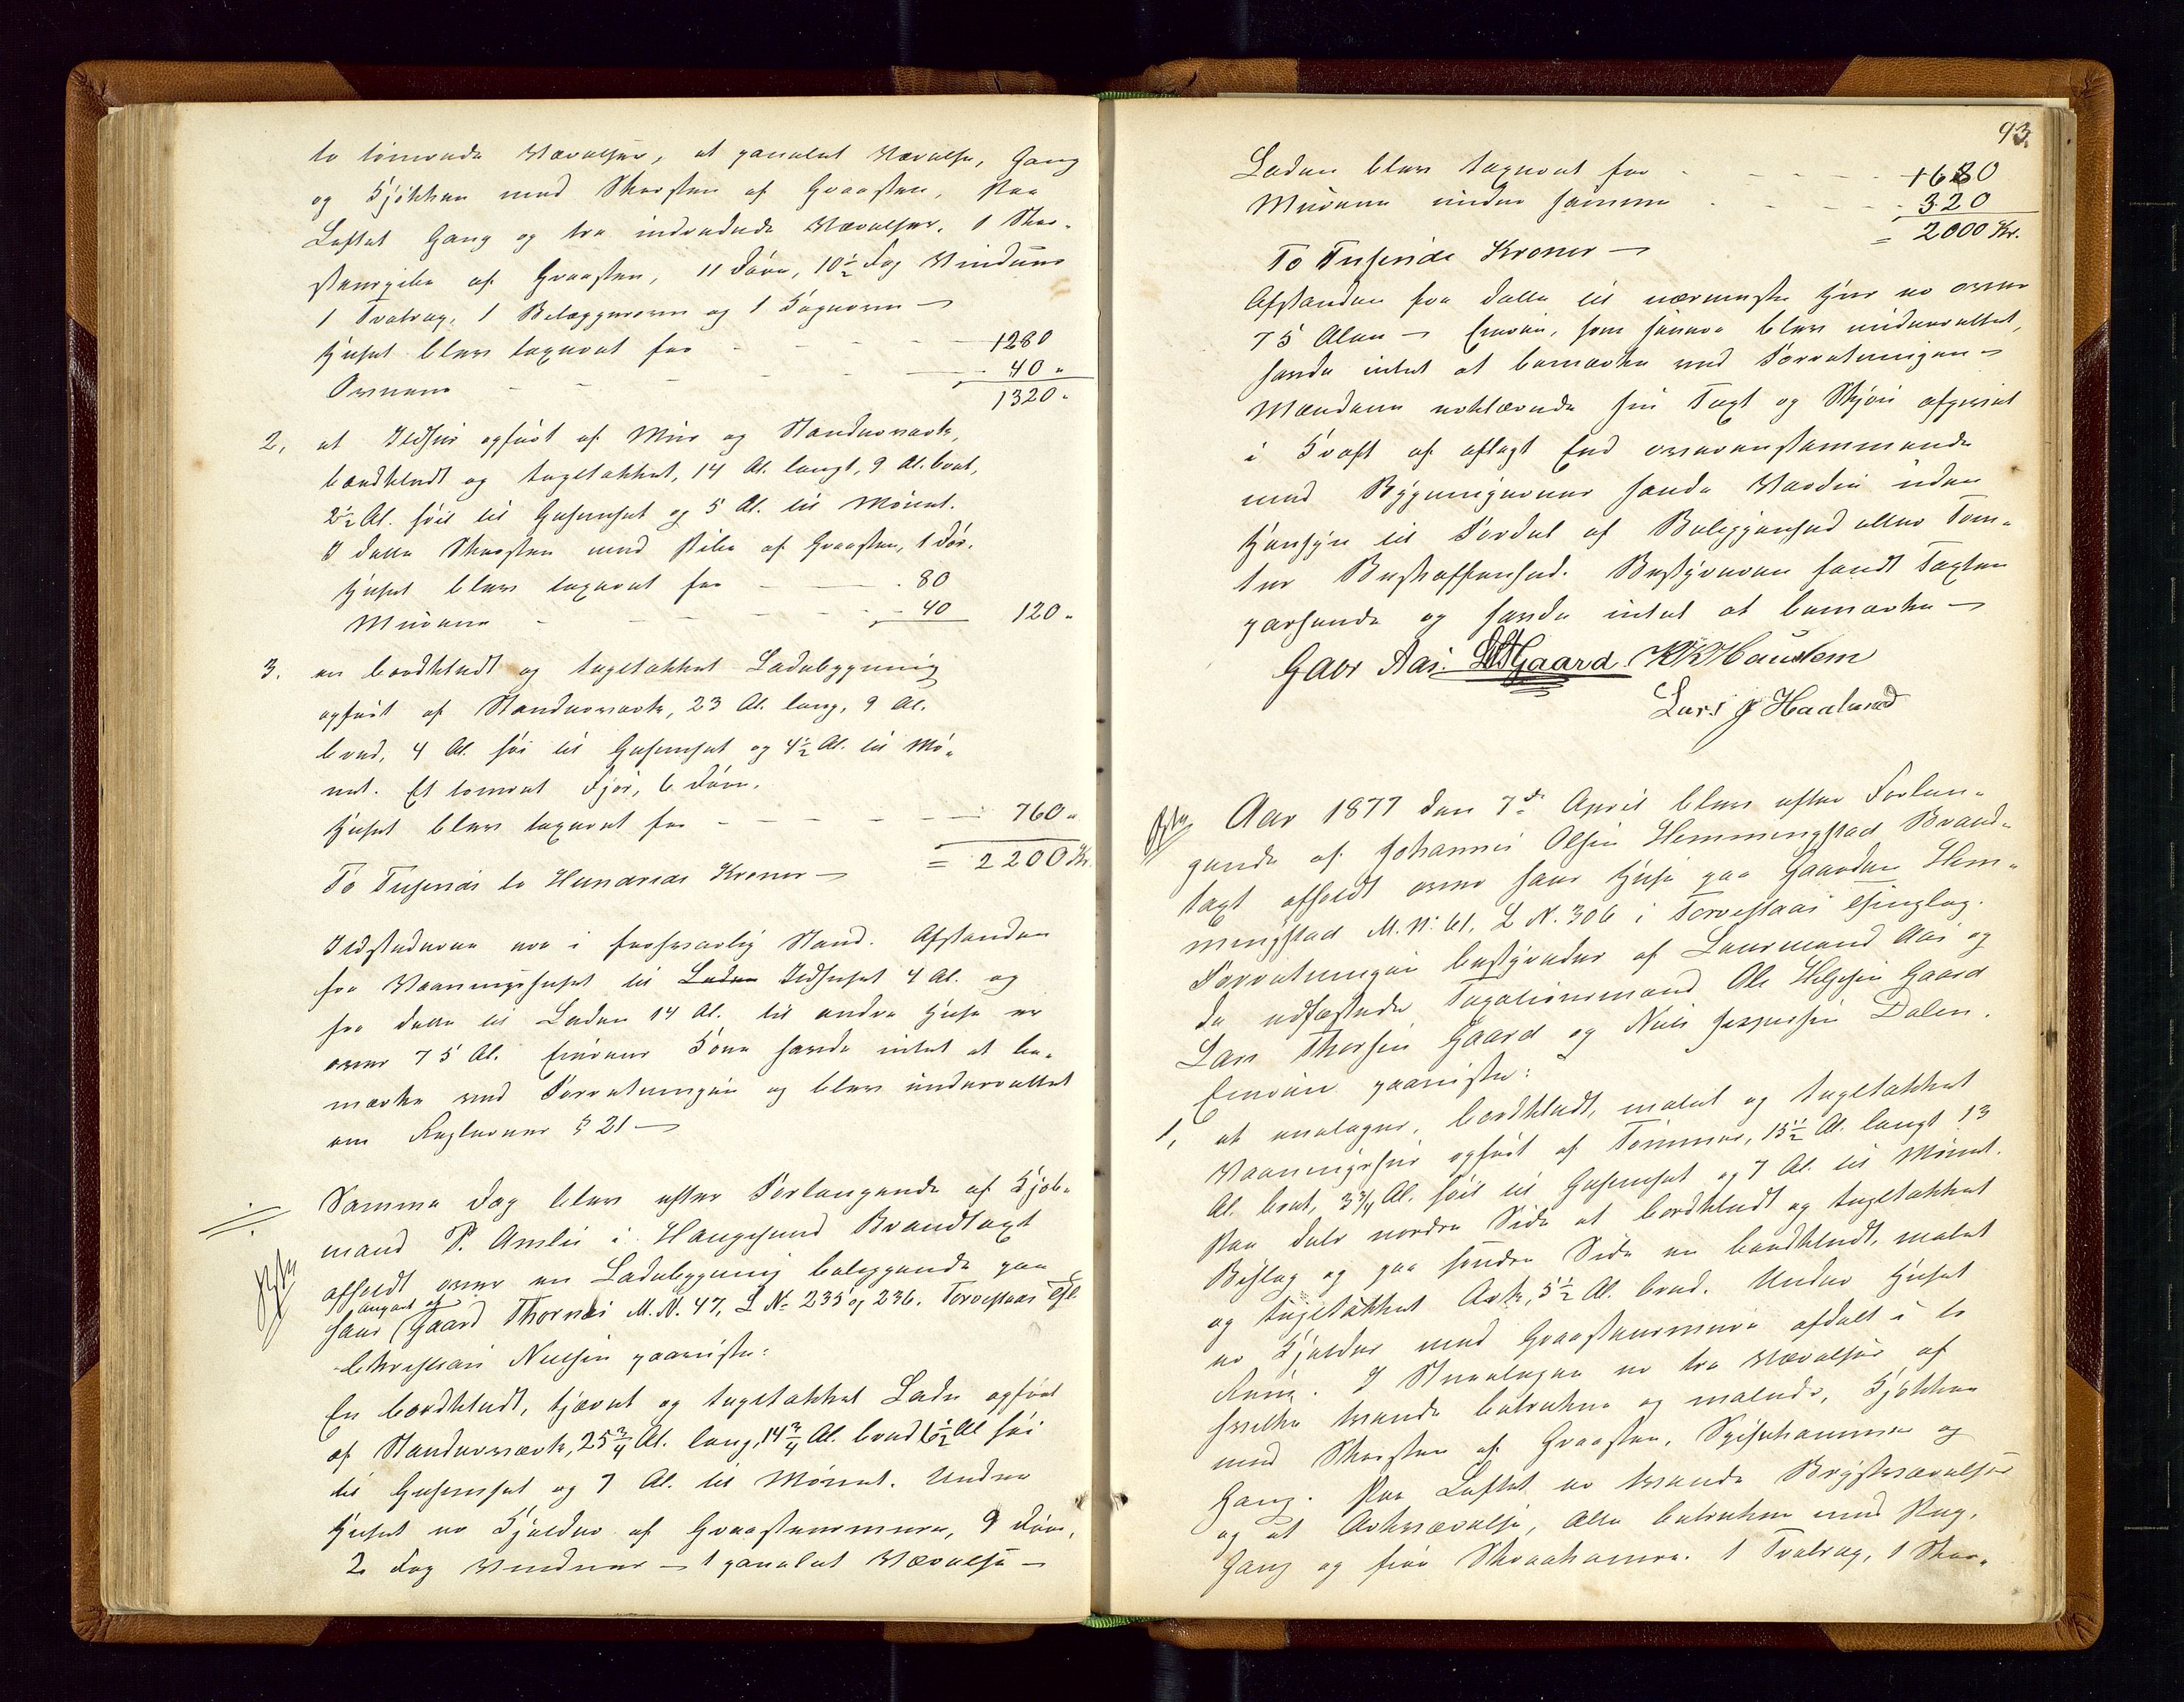 to tømrede Værelser, et panelet Værelse, Gang
og Kjøkken med Skorsten af Graasten, Paa
Loftet Gang og tre indredede Værelser, 1 Skor-
stenspibe af Graasten, 11 Døre, 10½ Fag Vinduer
1 Svalrag, 1 Bilæggerovn og 1 Kogeovn —
Huset blev taxeret for - - - 1280
Ovnene - - - 40 „
1320 „
2, et Ildhus opført af Mur og Standerværk,
bordklædt og tagteltakket, 14 Al. langt, 9 Al. bredt,
2½ Al. høit til Gesimset og 5 Al. til Mønet.
I dette Skorsten med Pibe af Graasten, 1 Dør.
Huset blev taxeret for - 80
Murene - - - 40 120 „
3. en bordklædt og tegltakket Ladebygning
opført af Standerværk, 23 Al. lang, 9 Al.
bred, 4 Al. høi til Gesimset og 4½ Al. til Mø-
net. Et tømret Fjøs, 6 Døre.
Huset blev taxeret for - - - 760 „
To Tusende to Hundrede Kroner — = 2200 Kr.
Ildstederne ere i forsvarlig Stand. Afstanden
fra Vaaningshuset til Laden Ildhuset 4 Al. og
fra dette til Laden 14 Al. til andre Huse er
over 75 Al. Eierens Kone havde intet at be-
mærke ved Forretningen og blev underrettet
om Reglernes § 21 —
Samme Dag blev efter Forlangende af Kjøb-
mand P. Amlie i Haugesund Brandtaxt
afholdt over en Ladebygning beliggende paa
hans Gaard Thornes M. N. 47, L N. 235 og 236. Torvestads Thl
Christian Nielsen paaviste:
En bordklædt, tjæret og tegltakket Lade opført
af Standerværk, 25¾ Al. lang, 14¾ Al. bred 6½ Al høi
til Gesimset og 7 Al. til Mønet. Under
Huset er Kjelder af Graastensmure, 9 Døre,
2 Fag Vinduer — 1 panelet Værelse —
93.
Laden blev taxeret for - - - 1680
Murene under samme - - - 320
To Tusende Kroner — = 2000 Kr.
Afstanden fra dette til nærmeste Hus er over
75 Alen — Eieren, som senere blev underrettet,
havde intet at bemærke ved Forretningen —
Mændene erklærede sin Taxt og Skjøn afgivet
i Kraft af aflagt Eed overensstemmende
med Bygningernes sande Værdi uden
Hensyn til Fordel af Beliggenhed eller Tom-
ter Beskaffenhed. Bestyreren fandt Taxten
passende og havde intet at bemærke —
Gabr Aas. Gaard
Lars J Haaland
Aar 1877 den 7de April blev efter Forlan-
gende af Johannes Olsen Hemmingstad Brand-
taxt afholdt over hans Huse paa Gaarden Hem-
mingstad M. N. 61, L N. 306 i Torvestads Thinglag.
Forretningen bestyredes af Lensmand Aas og
de udfæstede Taxationsmænd Ole Helgesen Gaard
Lars Thorsen Gaard og Niels Jespersen Dalen.
Eieren paaviste:
1, et enetages, bordklædt, malet og tegltakket
Vaaningshus opført af Tømmer, 15½ Al. langt 13
Al. bredt, 3¾ Al. høit til Gesimset og 7 Al. til Mønet.
Paa dets nordre Side et bordklædt og tegltakket
Bislag og paa søndre Side en bordklædt, malet
og tegltakket Ark, 5½ Al. bred. Under Huset
er Kjelder med Graastensmure afdelt i to
Rum. I Stueetagen er tre Værelser af
hvilke tvende betrukne og malede, Kjøkken
med Skorsten af Graasten, Spisekammer og
Gang. Paa Loftet er tvende Brystværelser
og et Arkværelse, alle betrukne med Pap,
Gang og fire Skraakamre. 1 Svalrag, 1 Skor-